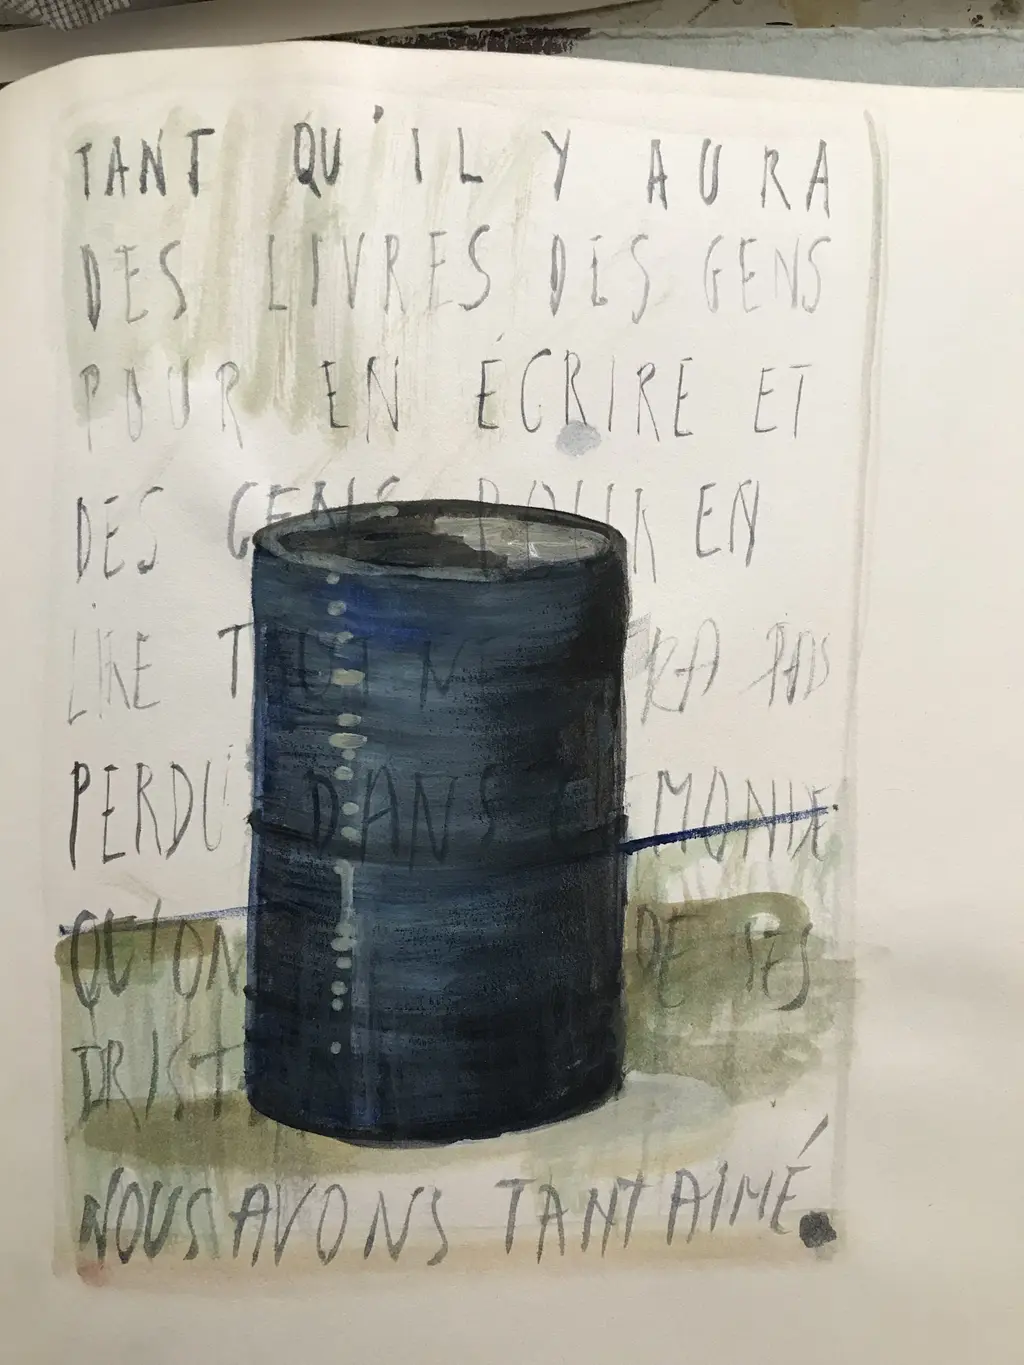 TANT QU'IL Y AURA
DES LIVRES DES GENS
POUR EN ÉCRIRE ET
DES GENS POUR EN
LIRE TOUT NE PAS
PERDU DANS CE MONDE
QU'ON DE SES
NOUS AVONS TANT AIMÉ.